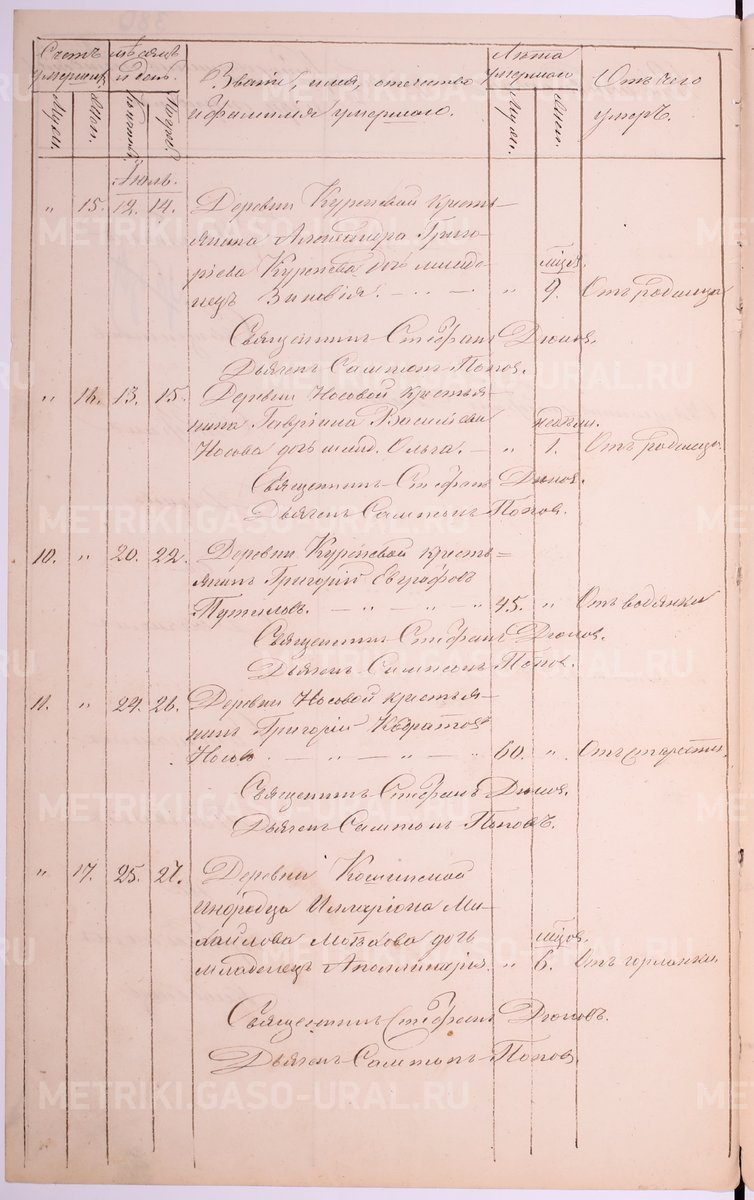 Счетъ умершихъ. Мѣсяцъ и день. Звание, имя, отчество и фамилия умершаго. Лѣта умершаго Отъ чего умеръ.
Муж. Жен. Муж. Жен.
Июль.
" 15. 12. 14. Деревни Куреневой кресть-
янина Александра Григо-
рьева дочь младе- мѣсяц.
нецъ Зиновія. — " — " 9. Отъ родимца
Священникъ Стефанъ
Дьячекъ Сампсонъ Поповъ.
" 16. 13. 15. Деревни Носовой крестья-
нина Гавріила Васильева недѣли.
Носова дочь млад. Ольга. — " 1. Отъ родимца.
Священникъ Стефанъ
Дьячекъ Сампсонъ Поповъ.
10. " 20. 22. Деревни Куреневой кресть-
янинъ Григорій Евграфовъ
Путиловъ. — " — " — 45. " Отъ водянки
Священникъ Стефанъ
Дьячекъ Сампсонъ Поповъ.
11. " 24. 26. Деревни Носовой крестья-
нинъ Григорій
Носовъ. — " — " — " 60. " Отъ старости.
Священникъ Стефанъ
Дьячекъ Сампсонъ Поповъ.
" 17. 25. 27. Деревни
Инородца Илларіона Ми-
хайлова дочь мѣсяц.
младенецъ Аполлинарія. " 6. Отъ
Священникъ Стефанъ
Дьячекъ Сампсонъ Поповъ.
METRIKI.GASO-URAL.RU